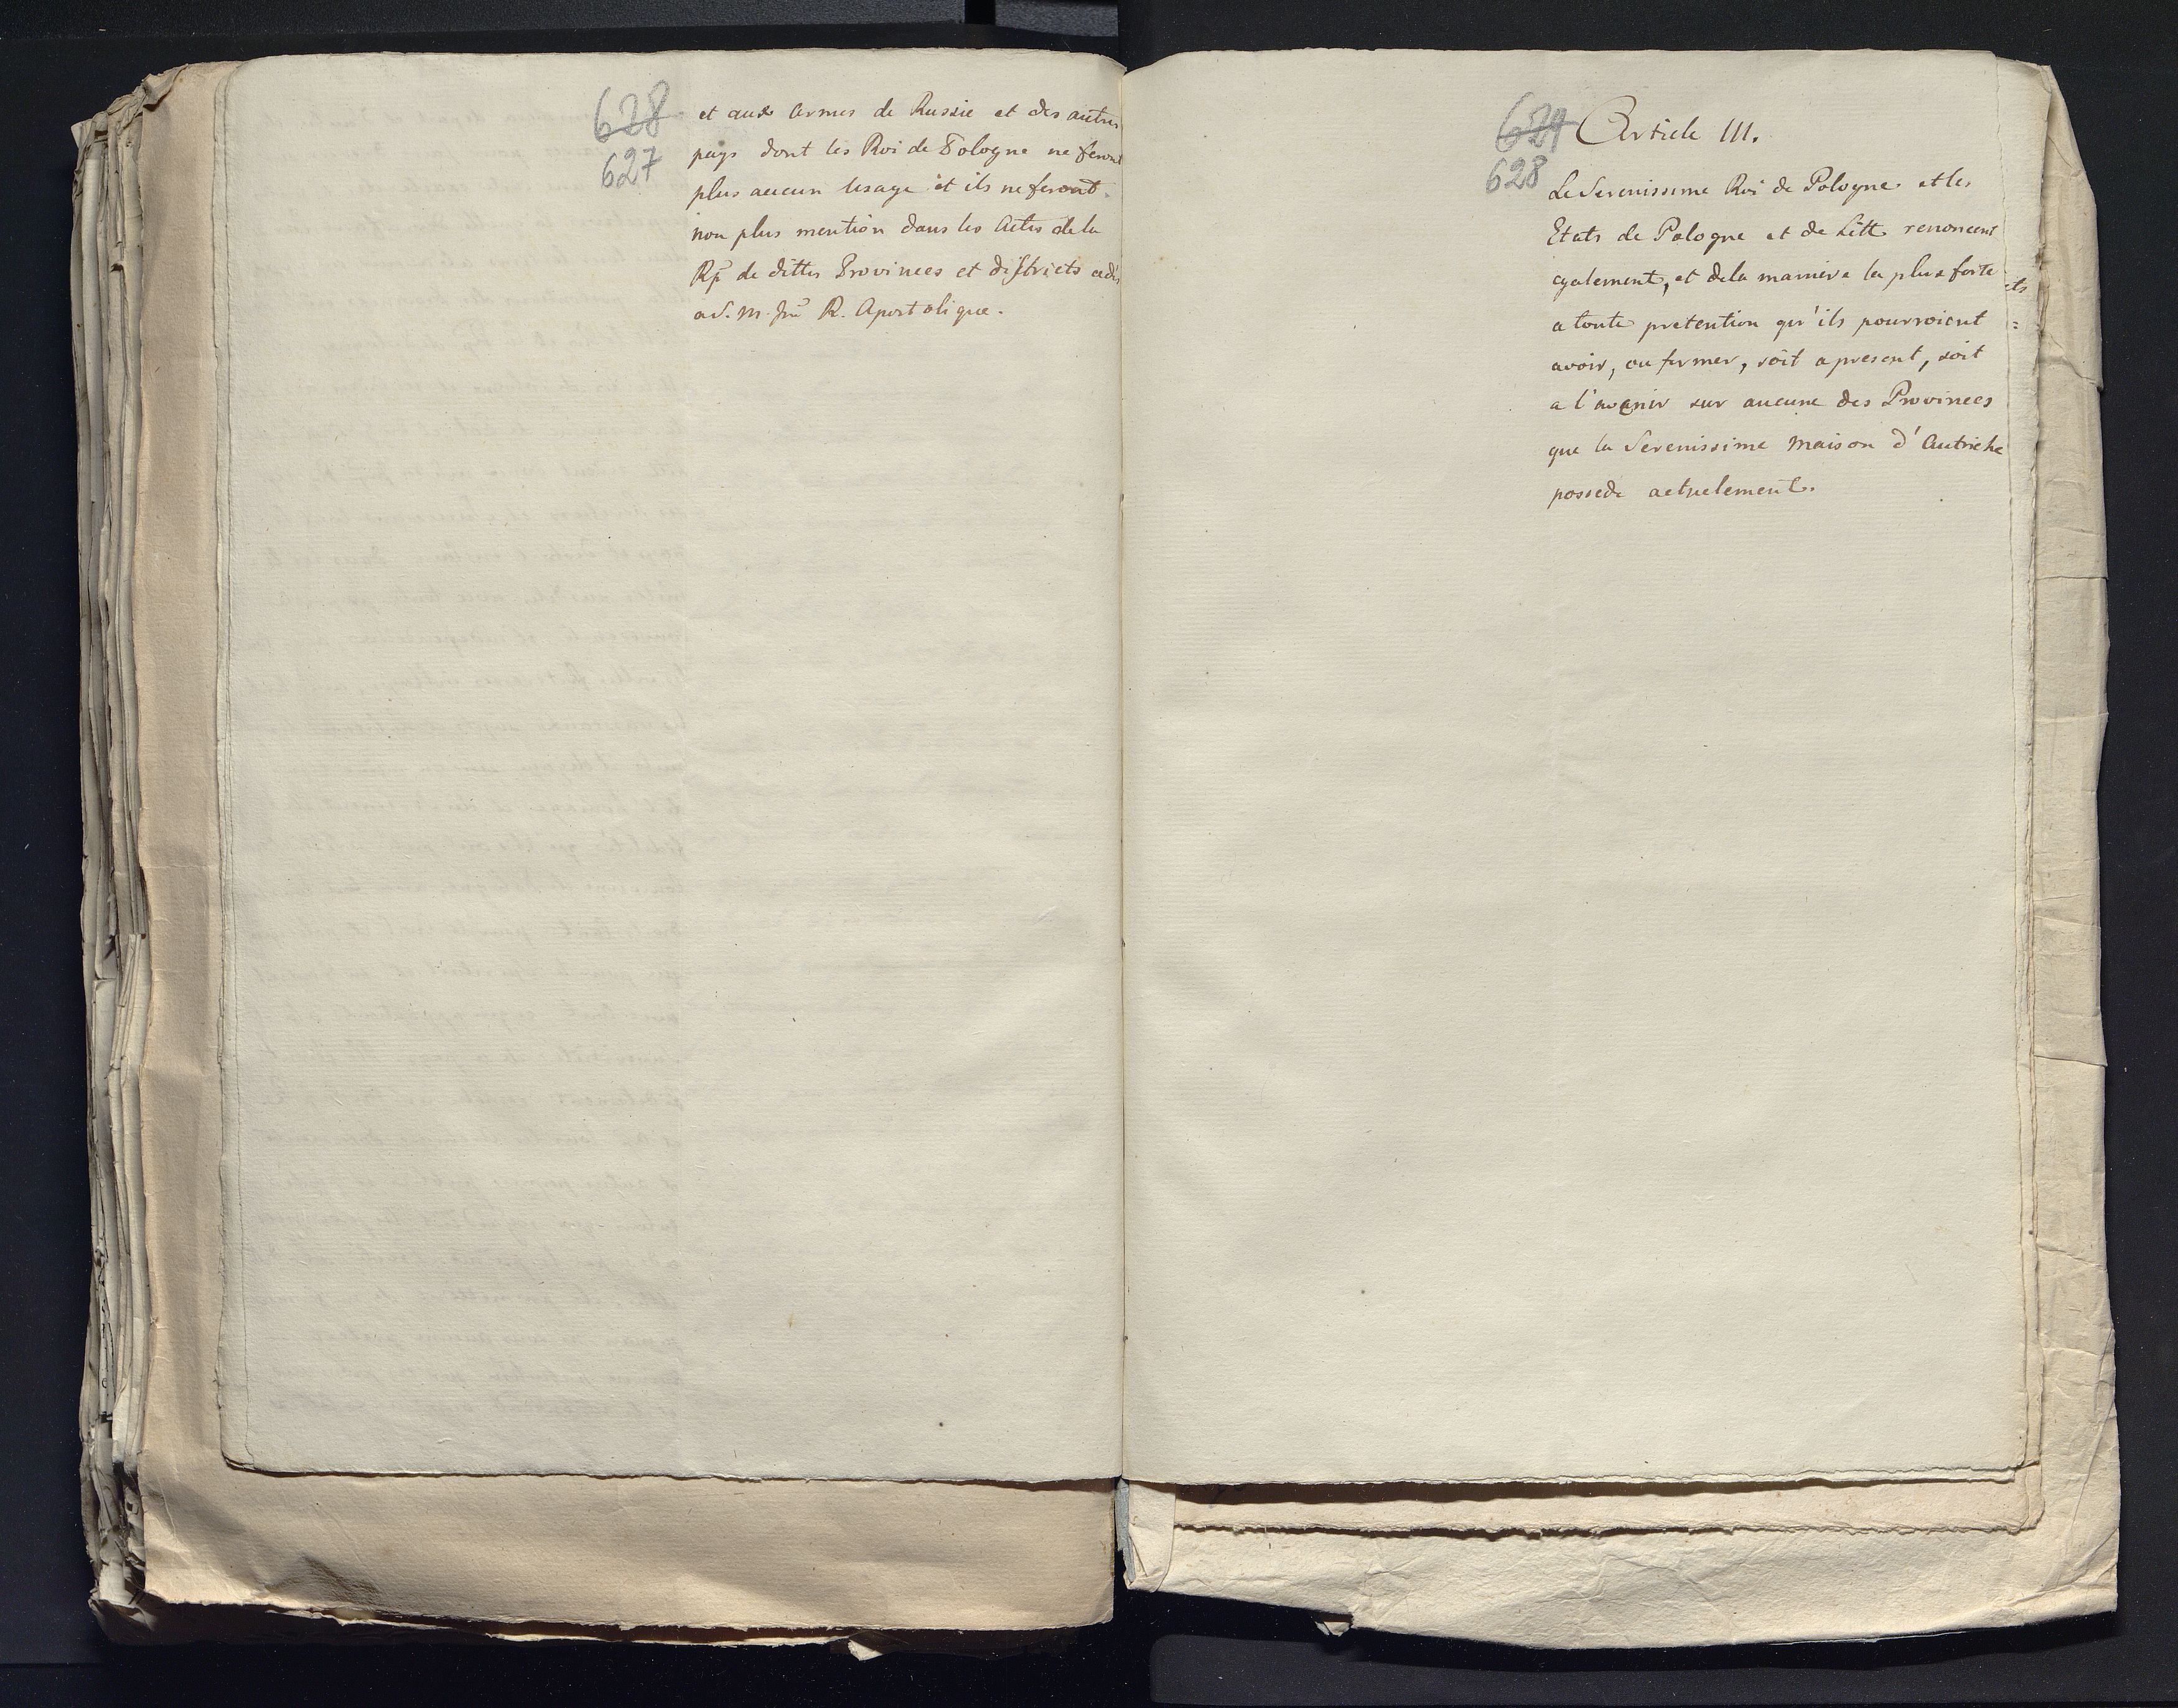 628
627
et aux armes de Russie et des autres
pays dont les Roi de Pologne ne feront
plus aucun usage et ils ne feront
non plus mention dans les Actes de la
Rp̃ de dittes Provinces et districts cedés
a S. M. R. Apostolique.
629
628
Article III.
Le Serenissime Roi de Pologne et les
Etats de Pologne et de Litt. renoncent
egalement, et de la maniere la plus forte
a toute pretention qu'ils pourroient
avoir, ou former, soit a present, soit
a l'avenir sur aucune des Provinces
que la Serenissime Maison d'Autriche
possede actuelement.